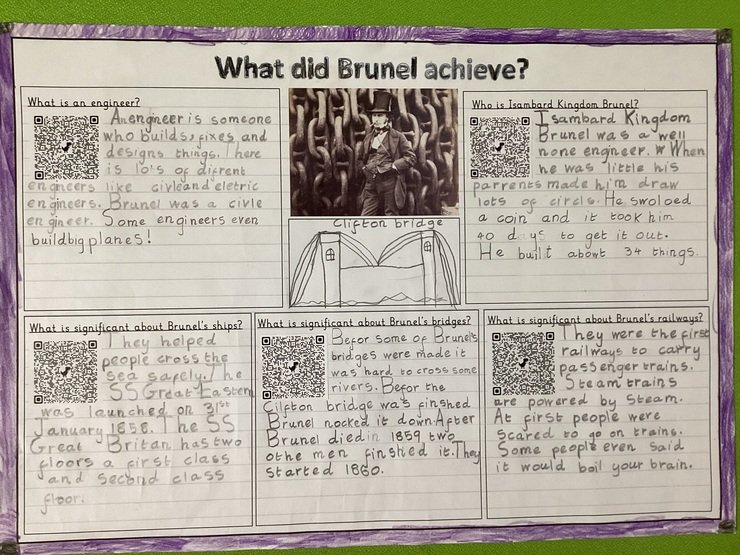 What did Brunel achieve?
What is an engineer?
An engineer is someone
who builds, fixes and
designs things. There
is lots of difrent
engineers like civle and eletric
engineers. Brunel was a civle
engineer. Some engineers even
build big planes!
Clifton bridge
Who is Isambard Kingdom Brunel?
Isambard Kingdom
Brunel was a well
none engineer. When
he was little his
parrents made him draw
lots of circls. He swoloed
a coin and it took him
40 days to get it out.
He built about 34 things.
What is significant about Brunel's ships?
They helped
people cross the
sea safely. The
SS Great Eastern
was launched on 31st
January 1858. The SS
Great Britan has two
floors a first class
and second class
floor.
What is significant about Brunel's bridges?
Befor some of Brunels
bridges were made it
was hard to cross some
rivers. Befor the
Cilfton bridge was finshed
Brunel nocked it down. After
Brunel died in 1859 two
othe men finshed it. They
started 1860.
What is significant about Brunel's railways?
They were the first
railways to carry
passenger trains.
Steam trains
are powered by steam.
At first people were
scared to go on trains.
Some people even said
it would boil your brain.